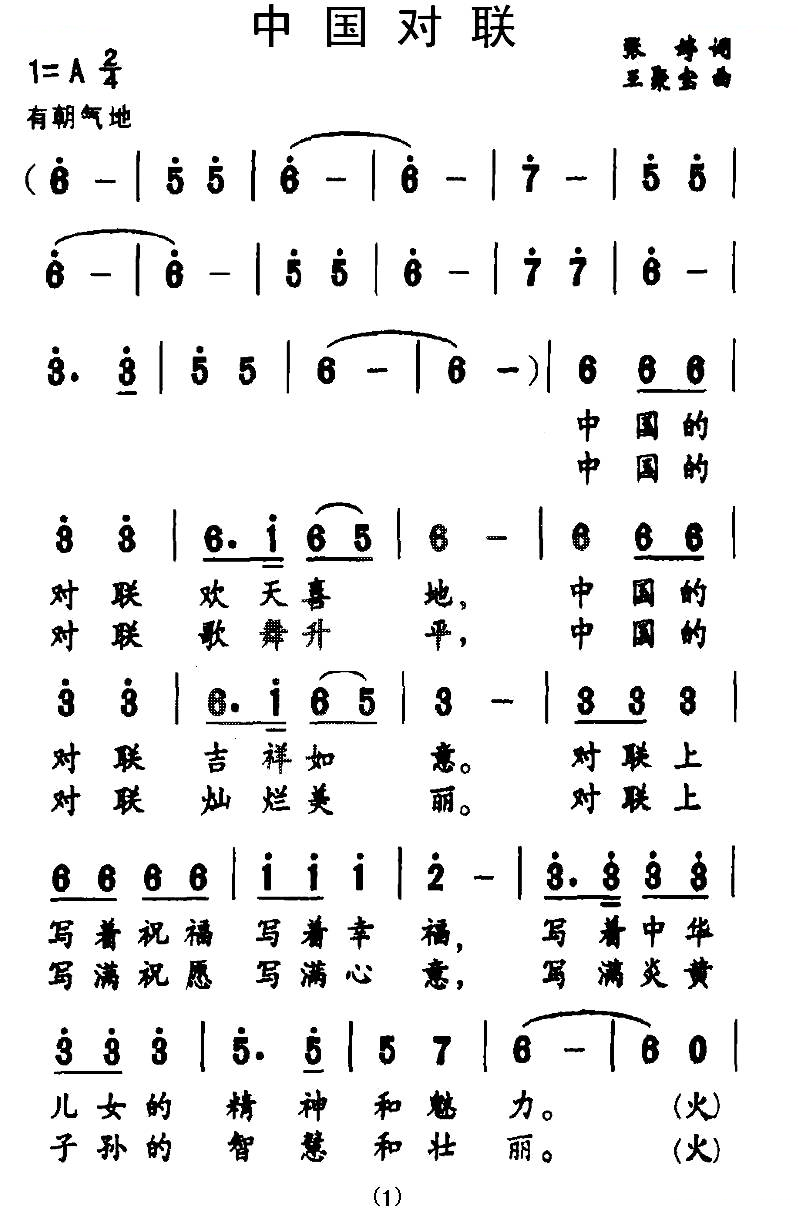 中国对联
张婷词
1=A 2/4
王聚宝曲
有朝气地
(6 - | 5 5 | 6 - | 6 - | 7 - | 5 5 |
6 - | 6 - | 5 5 | 6 - | 7 7 | 6 - |
3. 3 | 5 5 | 6 - | 6 -) | 6 6 6 |
中国的
中国的
3 3 | 6. i 6 5 | 6 - | 6 6 6 |
对联欢天喜地,中国的
对联歌舞升平,中国的
3 3 | 6. i 6 5 | 3 - | 3 3 3 |
对联吉祥如意。对联上
对联灿烂美丽。对联上
6 6 6 6 | i i i | 2 - | 3. 3 3 3 |
写着祝福写着幸福,写着中华
写满祝愿写满心意,写满炎黄
3 3 3 | 5. 5 | 5 7 | 6 - | 6 0 |
儿女的精神和魅力。(火)
子孙的智慧和壮丽。(火)
(1)